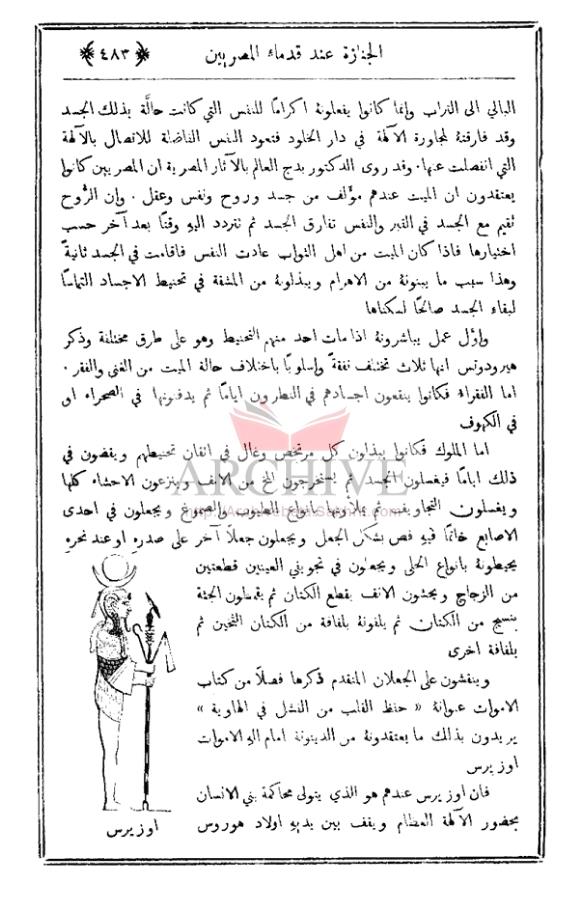 الجنازة عند قدماء المصريين ﴿ ٤٨٣ ﴾
البالي الى التراب وانما كانوا يفعلونهُ اكرامًا للنفس التي كانت حالَّة بذلك الجسد
وقد فارقتهُ لمجاورة الآلهة في دار الخلود فتعود النفس الفاضلة للاتصال بالآلهة
التي انفصلت عنها. وقد روى الدكتور بدج العالم بالآثار المصرية ان المصريين كانوا
يعتقدون ان الميت عندهم مؤلف من جسد وروح ونفس وعقل. وان الرُّوح
تقيم مع الجسد في القبر والنفس تفارق الجسد ثم تتردد اليهِ وقتًا بعد آخر حسب
اختيارها فاذا كان الميت من اهل الثواب عادت النفس فاقامت في الجسد ثانيةً
وهذا سبب ما يبنونهُ من الاهرام ويبذلونهُ من المشقة في تحنيط الاجساد التماسًا
لبقاء الجسد صالحًا لسكناها
واوَّل عمل يباشرونهُ اذا مات احد منهم التحنيط وهو على طرق مختلفة وذكر
هيرودوتس انها ثلاث تختلف نفقةً واسلوبًا باختلاف حالة الميت من الغنى والفقر.
اما الفقراء فكانوا ينقعون اجسادهم في النطرون ايامًا ثم يدفنونها في الصحراء او
في الكهوف
اما الملوك فكانوا يبذلون كل مرتخص وغال في اتقان تحنيطهم ويقضون في
ذلك ايامًا فيغسلون الجسد ثم يستخرجون المخ من الانف وينزعون الاحشاء كلها
ويغسلون التجاويف ثم يملأونها بانواع الطيوب والصموغ ويجعلون في احدى
الاصابع خاتمًا فيهِ فص بشكل الجعل ويجعلون جعلاً آخر على صدرهِ او عند نحرهِ
يحيطونهُ بانواع الحلى ويجعلون في تجويفي العينين قطعتين
من الزجاج ويحشون الانف بقطع الكتان ثم يقمطون الجثة
بنسيج من الكتان ثم يلفونهُ بلفافة من الكتان الثخين ثم
بلفافة اخرى
وينقشون على الجعلان المتقدم ذكرها فصلاً من كتاب
الاموات عنوانهُ « حفظ القلب من النشل في الهاوية »
يريدون بذلك ما يعتقدونهُ من الدينونة امام اله الاموات
اوزيرس
فان اوزيرس عندهم هو الذي يتولى محاكمة بني الانسان
بحضور الآلهة العظام ويقف بين يديهِ اولاد هوروس
اوزيرس
ARCHIVE